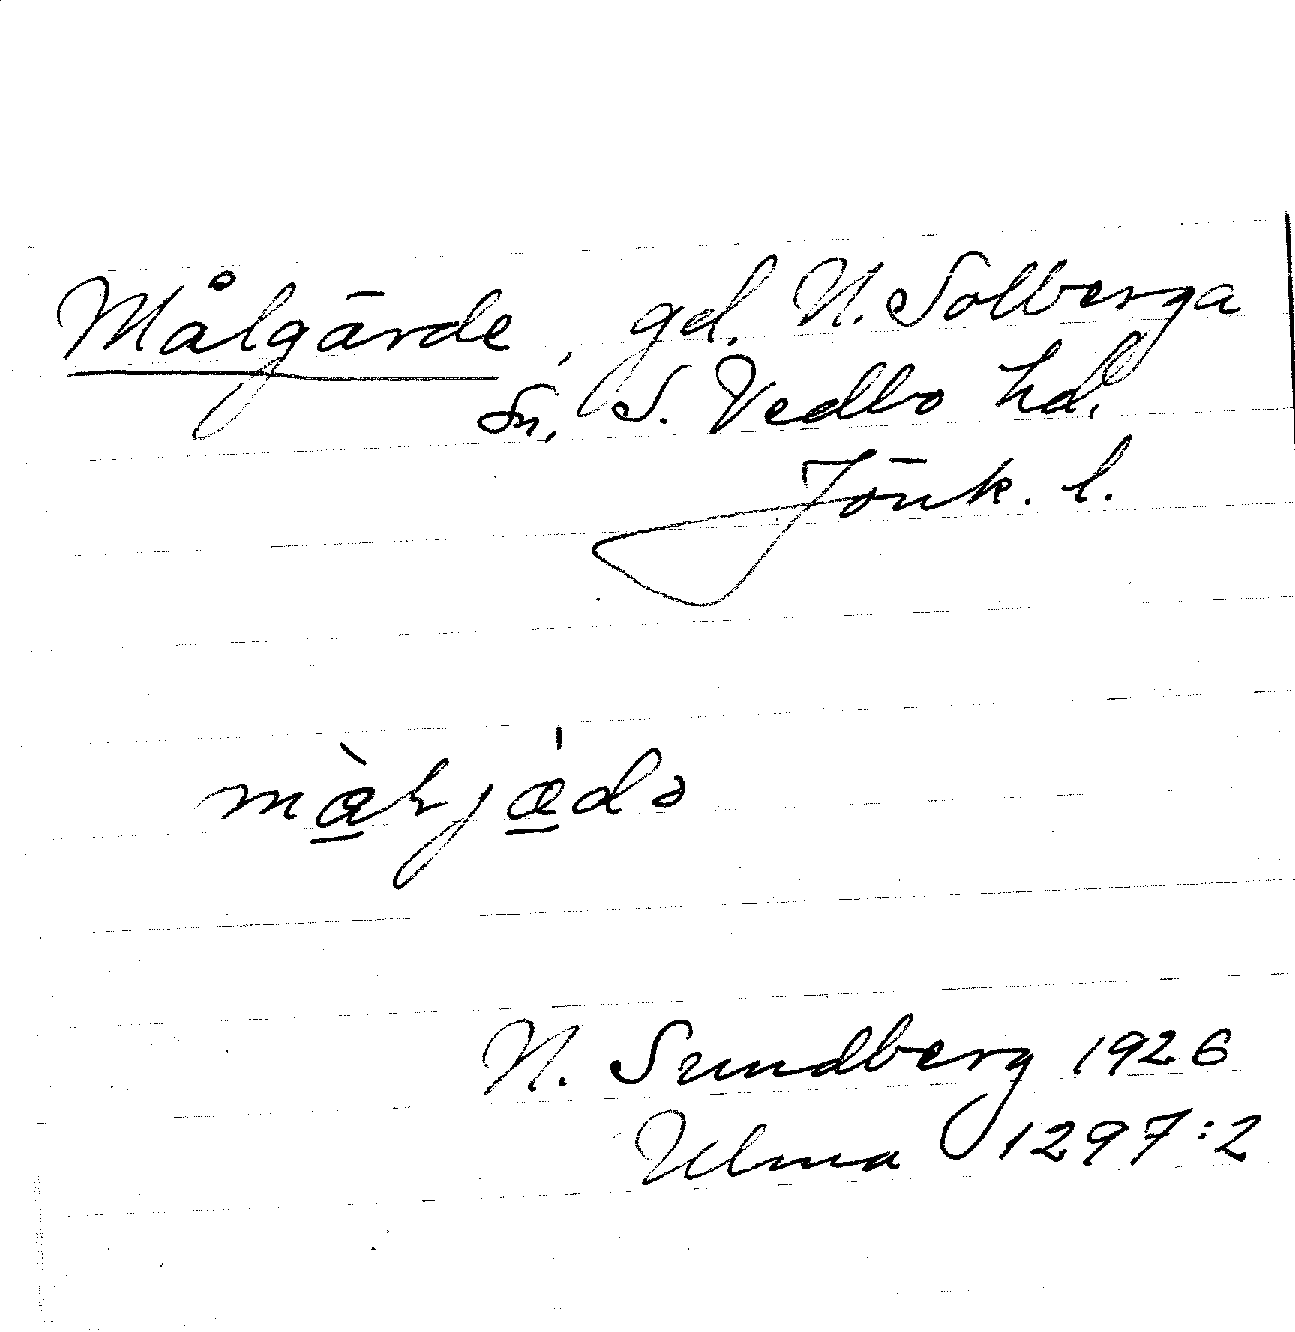 Målgärde, gd. N. Solberga
sn, S. Vedbo hd,
Jönk. l.
N. Sundberg 1926
Ulma 1297:2